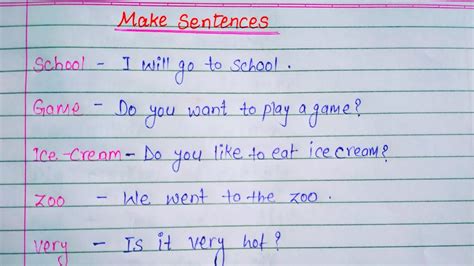 Make Sentences
School - I will go to School.
Game - Do you want to play a game?
Ice-Cream - Do you like to eat ice cream?
Zoo - We went to the zoo.
Very - Is it very hot?